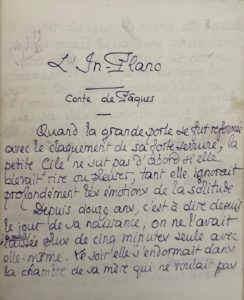 L'In-Plano
Conte de Pâques
Quand la grande porte se fut refermée
avec le claquement de sa forte serrure, la
petite Cile ne sut pas d'abord si elle
devait rire ou pleurer, tant elle ignorait
profondément les émotions de la solitude
Depuis douze ans, c'est à dire depuis
le jour de sa naissance, on ne l'avait
laissée plus de cinq minutes seule avec
elle-même. Le soir elle s'endormait dans
la chambre de sa mère qui ne voulait pas